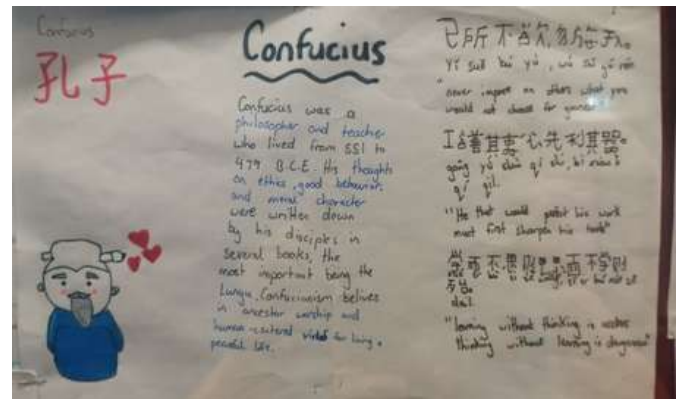 Confucius
孔子
Confucius
Confucius was a
philosopher and teacher
who lived from 551 to
479 B.C.E. His thoughts
on ethics, good behaviour,
and moral character
were written down
by his disciples in
several books, the
most important being the
Lunyu. Confucianism belives
in ancestor worship and
human-centered for living a
peaceful life.
己所不欲,勿施于人。
"never impose on others what you
would not choose for yourself"
"He that would perfect his work
must first sharpen his tools"
"learning without thinking is useless
thinking without learning is dangerous"